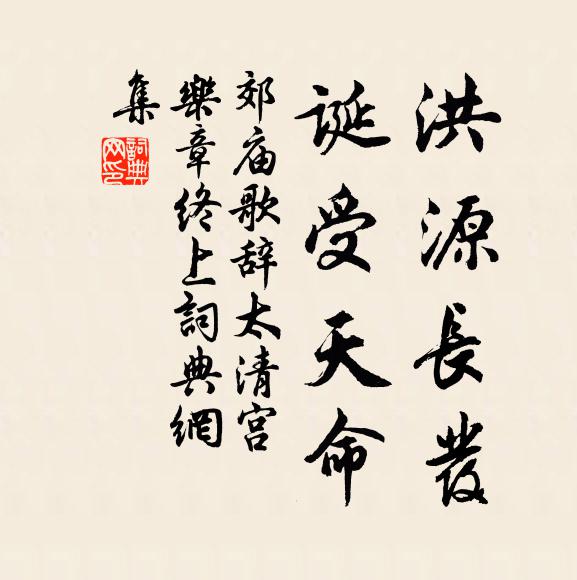 洪源長發
誕受天命
郊庙歌辞太清宫
樂章终上詞典網
集
詞典網印